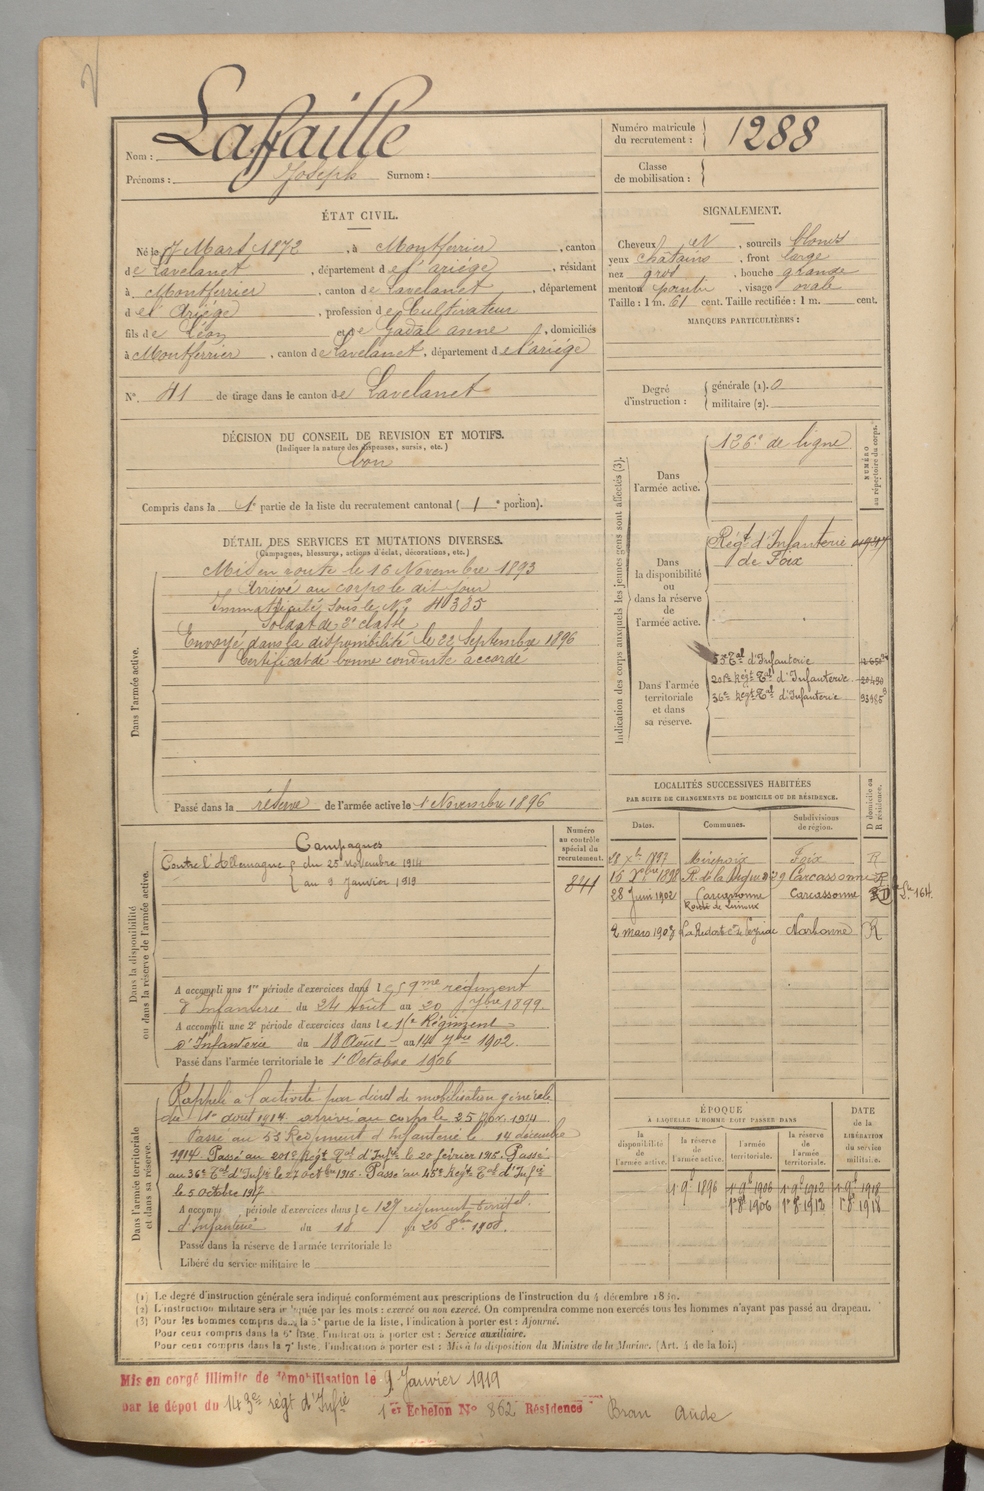 Nom : Laffaille
Prénoms : Joseph Surnom :
Numéro matricule du recrutement : 1288
Classe de mobilisation :
ÉTAT CIVIL.
Né le 7 Mars 1872, à Montferrier, canton
de Lavelanet, département de l'ariége, résidant
à Montferrier, canton de Lavelanet, département
de l'Ariége, profession de Cultivateur
fils de Léon et de Gadal anne, domiciliés
à Montferrier, canton de Lavelanet, département de l'ariége
N° 41 de tirage dans le canton de Lavelanet
SIGNALEMENT.
Cheveux et, sourcils blonds
yeux chatains, front large
nez gros, bouche grande
menton pointu, visage ovale
Taille : 1 m. 61 cent. Taille rectifiée : 1 m. cent.
MARQUES PARTICULIÈRES :
Degré d'instruction : générale (1). 0
militaire (2).
DÉCISION DU CONSEIL DE REVISION ET MOTIFS.
(Indiquer la nature des dispenses, sursis, etc.)
bon
Compris dans la 1e partie de la liste du recrutement cantonal ( 1e portion).
DÉTAIL DES SERVICES ET MUTATIONS DIVERSES.
(Campagnes, blessures, actions d'éclat, décorations, etc.)
Dans l'armée active.
Mis en route le 16 Novembre 1893
Arrivé au corps le dit jour
Immatriculé sous le N°
Soldat de 2e classe
Envoyé dans la disponibilité le 22 Septembre 1896
Certificat de bonne conduite accordé
Passé dans la réserve de l'armée active le 1 Novembre 1896
Indication des corps auxquels les jeunes gens sont affectés (3).
NUMÉRO au répertoire du corps.
Dans l'armée active.
126e de ligne
Dans la disponibilité ou dans la réserve de l'armée active.
Régt d'Infanterie
de Foix
Dans l'armée territoriale et dans sa réserve.
Tal d'Infanterie
201e Régt Tal d'Infanterie
36e Régt Tal d'Infanterie
LOCALITÉS SUCCESSIVES HABITÉES
PAR SUITE DE CHANGEMENTS DE DOMICILE OU DE RÉSIDENCE.
D domicile ou R résidence.
Dates. Communes. Subdivisions de région.
28 Xbre 1897 Mirepoix Foix R
16 1898 Carcassonne R
28 Juin 1902 Carcassonne Carcassonne
Route de Limoux
2 mars 1907 Narbonne R
Dans la disponibilité ou dans la réserve de l'armée active.
Numéro au contrôle spécial du recrutement.
841
Campagnes
Contre l'Allemagne du 25 novembre 1914
au 9 Janvier 1919
A accompli une 1re période d'exercices dans le 59me régiment
d'Infanterie du 24 Août au 20 7bre 1899.
A accompli une 2e période d'exercices dans le Régiment
d'Infanterie du 18 Août au 14 7bre 1902.
Passé dans l'armée territoriale le 1er Octobre 1906
Dans l'armée territoriale et dans sa réserve.
Rappelé à l'activité par décret de mobilisation générale
du 1er août 1914. arrivé au corps le 25 nov. 1914
Passé au 53 Régiment d'Infanterie le 14 décembre
1914. Passé au 201e Régt Tal d'Infie le 20 février 1915. Passé
au 36e Tal d'Infie le 27 octbre 1915. Passé au 45e Régt Tal d'Infie
le 5 Octobre 1917
A accompli période d'exercices dans le 127 régiment territal
d'Infanterie du 18 au 26 8bre 1908.
Passé dans la réserve de l'armée territoriale le
Libéré du service militaire le
ÉPOQUE
À LAQUELLE L'HOMME DOIT PASSER DANS
DATE de la LIBÉRATION du service militaire.
la disponibilité de l'armée active. la réserve de l'armée active. l'armée territoriale. la réserve de l'armée territoriale.
1 9bre 1896 1 9bre 1906 1 9bre 1912 1 9bre 1918
1er 8bre 1906 1er 8bre 1912 1er 8bre 1918
(1) Le degré d'instruction générale sera indiqué conformément aux prescriptions de l'instruction du 4 décembre
(2) L'instruction militaire sera indiquée par les mots : exercé ou non exercé. On comprendra comme non exercés tous les hommes n'ayant pas passé au drapeau.
(3) Pour les hommes compris dans la 5e partie de la liste, l'indication à porter est : Ajourné.
Pour ceux compris dans la 6e liste, l'indication à porter est : Service auxiliaire.
Pour ceux compris dans la 7e liste, l'indication à porter est : Mis à la disposition du Ministre de la Marine. (Art. 4 de la loi.)
Mis en congé illimité de démobilisation le 9 Janvier 1919
par le dépôt du 143e régt d'Infie 1er Echelon N° 862 Résidence Bram Aude